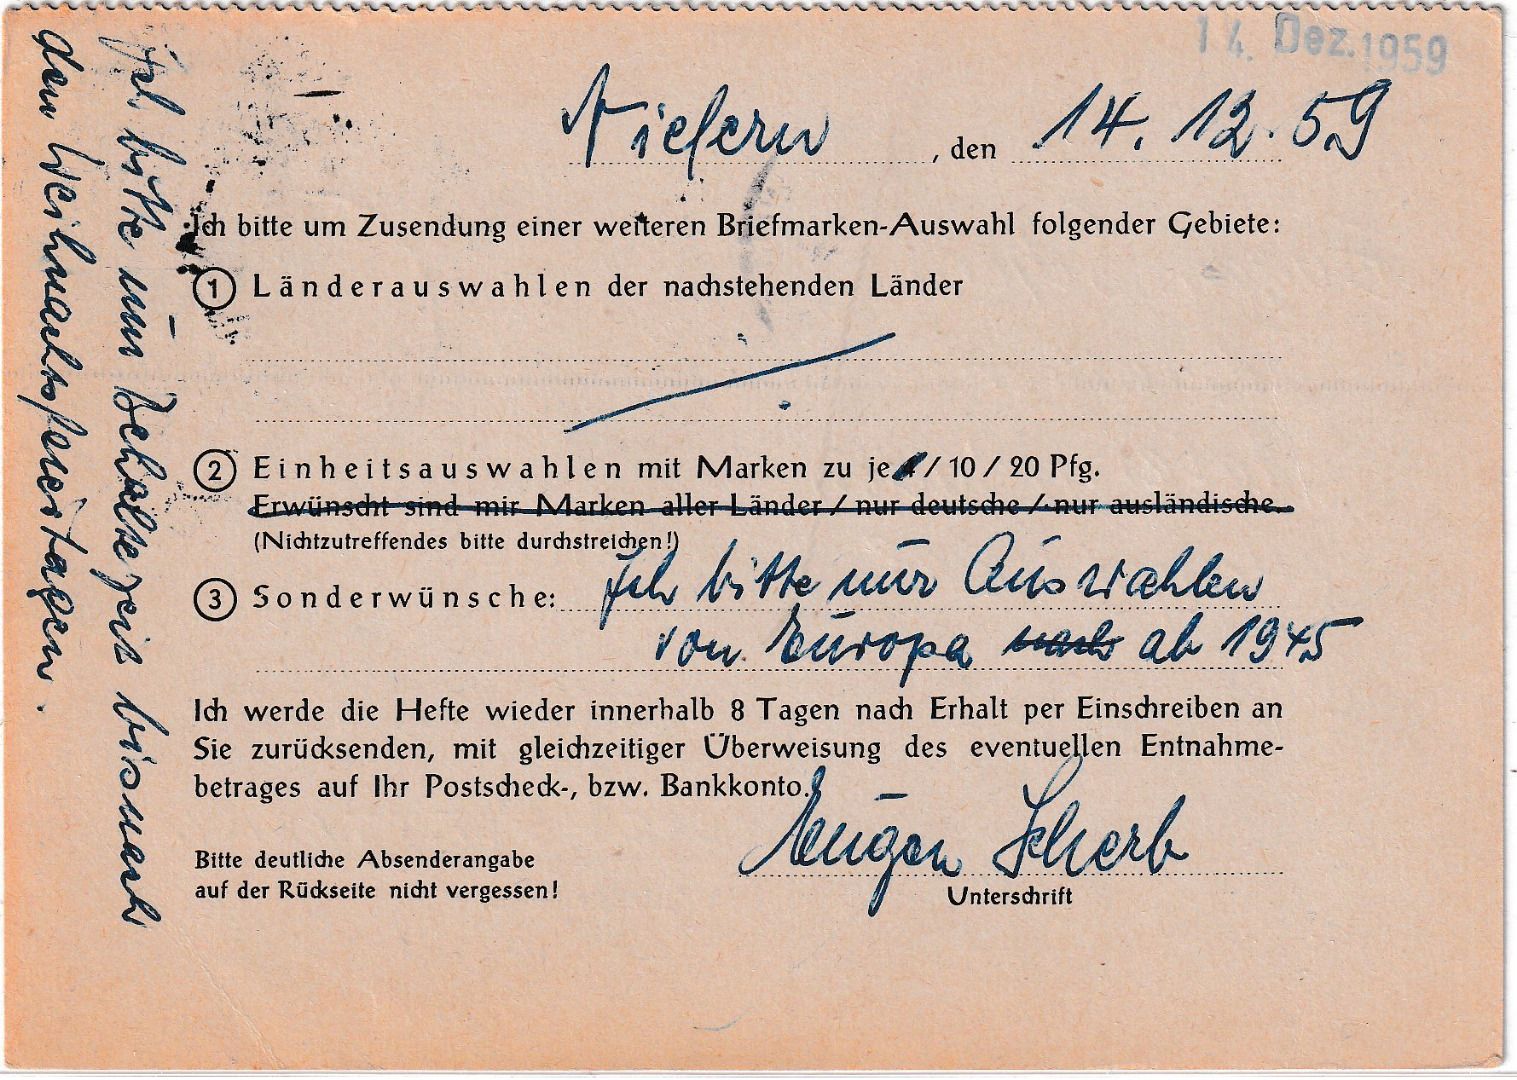 14. Dez. 1959
Niefern, den 14. 12. 59
Ich bitte um Zusendung einer weiteren Briefmarken-Auswahl folgender Gebiete:
1 Länderauswahlen der nachstehenden Länder
2 Einheitsauswahlen mit Marken zu je / 10 / 20 Pfg.
Erwünscht sind mir Marken aller Länder / nur deutsche / nur ausländische.
(Nichtzutreffendes bitte durchstreichen!)
3 Sonderwünsche: Ich bitte nur Auswahlen
von Europa nach ab 1945
Ich werde die Hefte wieder innerhalb 8 Tagen nach Erhalt per Einschreiben an
Sie zurücksenden, mit gleichzeitiger Überweisung des eventuellen Entnahme-
betrages auf Ihr Postscheck-, bzw. Bankkonto.
Eugen Scherb
Bitte deutliche Absenderangabe
auf der Rückseite nicht vergessen!
Unterschrift
Ich bitte um Behaltezeit bis nach
den Weihnachtsfeiertagen.